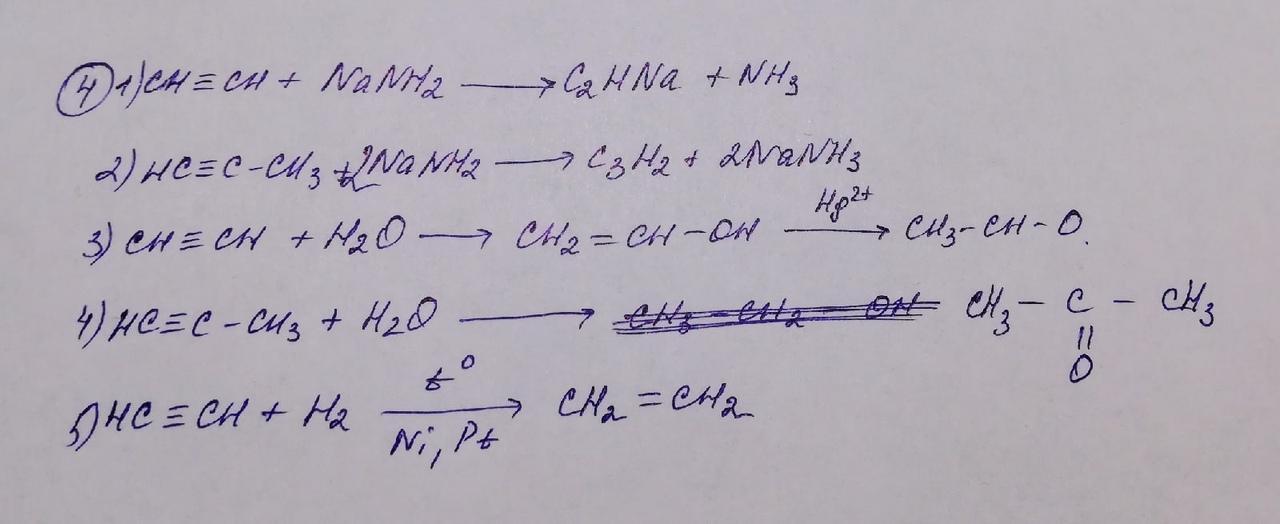 ④ 1) CH≡CH + NaNH₂ ⟶ C₂HNa + NH₃
2) HC≡C-CH₃ + 2NaNH₂ ⟶ C₃H₂ + 2NaNH₃
Hg²⁺
3) CH≡CH + H₂O ⟶ CH₂=CH-OH ⟶ CH₃-CH-O.
4) HC≡C-CH₃ + H₂O ⟶ CH₃-CH₂-OH CH₃-C-CH₃
||
O
t⁰
5) HC≡CH + H₂ ⟶ CH₂=CH₂
Ni, Pt